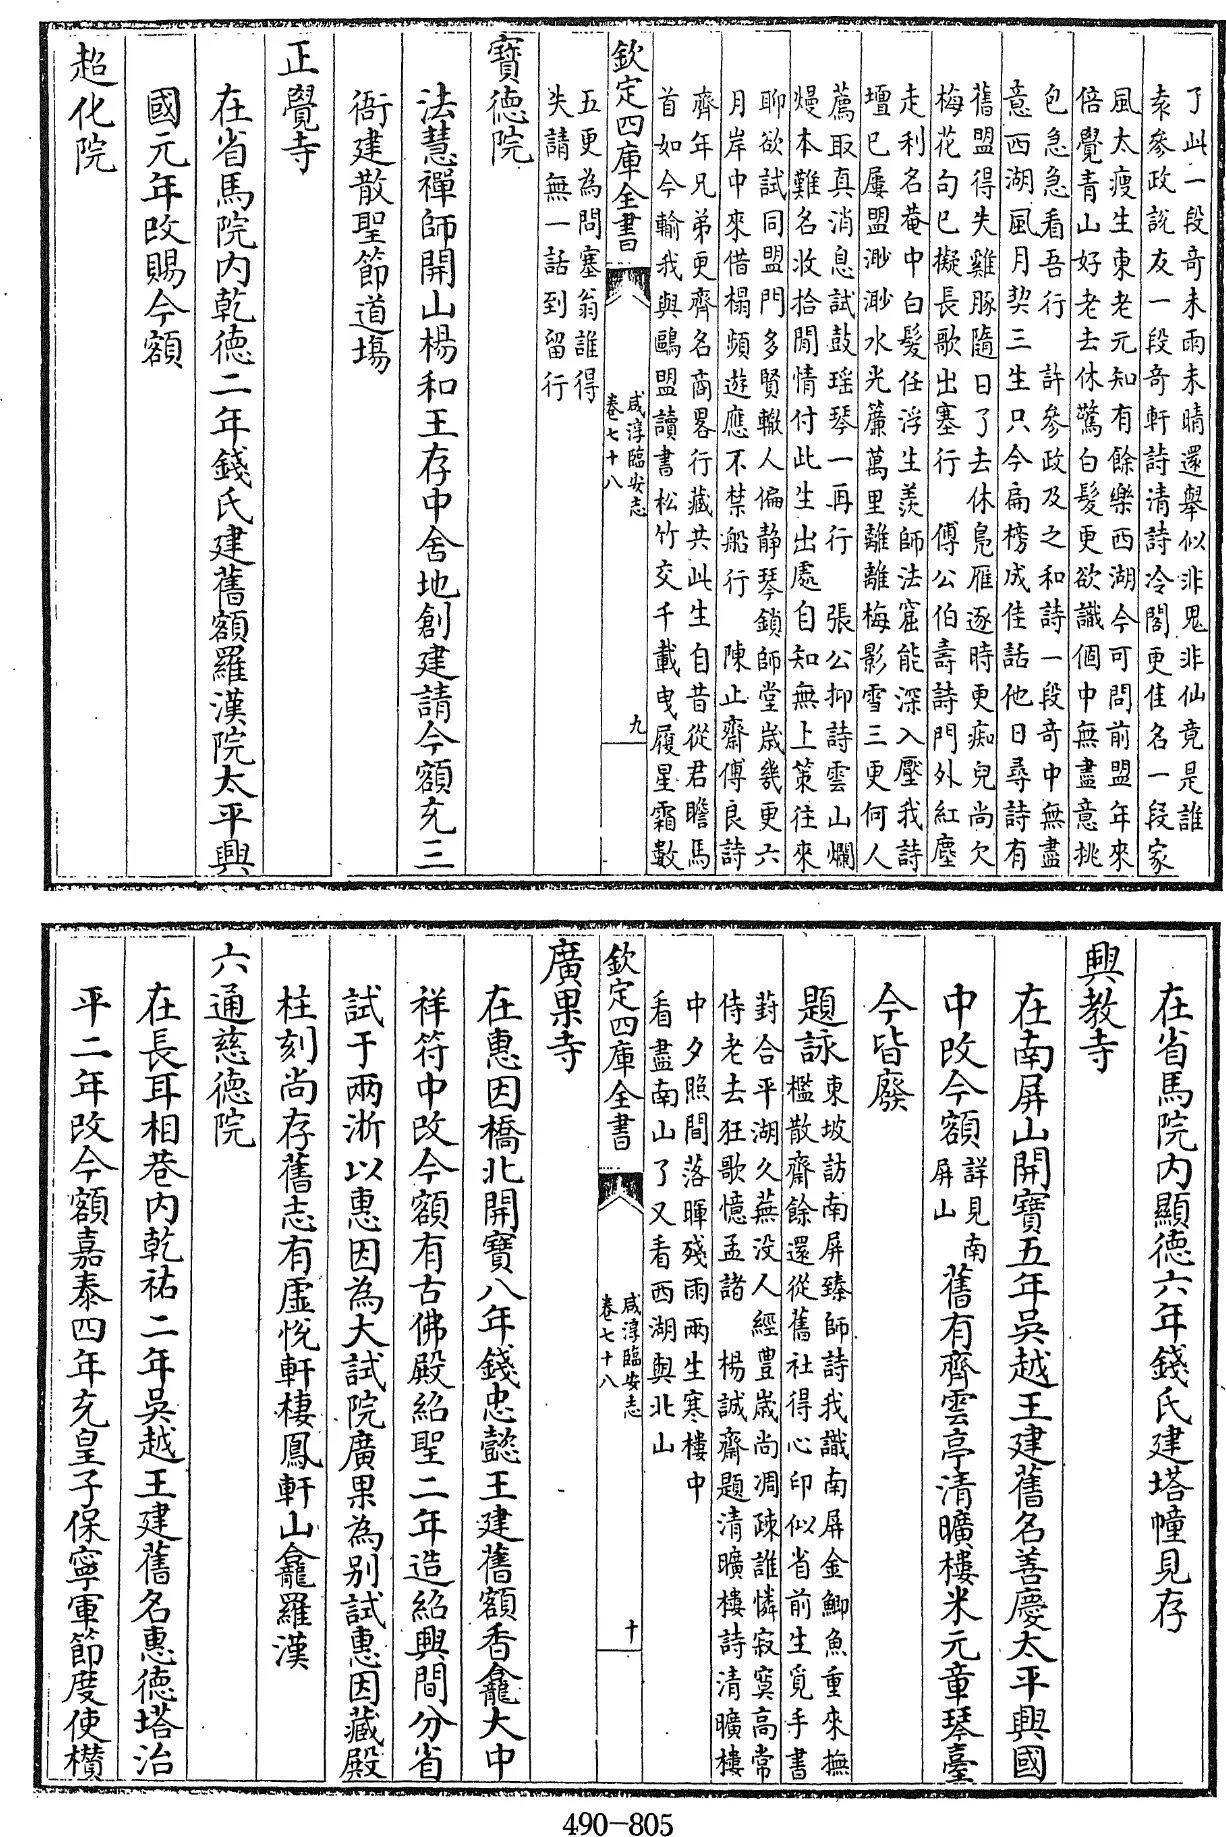 了此一段奇未雨未晴還舉似非鬼非仙竟是誰
袁參政說友一段奇軒詩清詩冷閣更隹名一段家
風太瘦生東老元知有餘樂西湖今可問前盟年來
倍覺青山好老去休驚白髮更欲識個中無盡意挑
包急急看吾行　許參政及之和詩一段奇中無盡
意西湖風月契三生只今扁榜成佳話他日尋詩有
舊盟得失雞豚隨日了去休鳧雁逐時更痴兒尚欠
梅花句已擬長歌出塞行　傅公伯壽詩門外紅塵
走利名菴中白髮任浮生羨師法窟能深入壓我詩
壇已屢盟渺渺水光簾萬里離離梅影雪三更何人
薦取真消息試鼓瑶琴一再行　張公抑詩雲山爛
熳本難名收拾閒情付此生出處自知無上策往來
聊欲試同盟門多賢轍人偏静琴鎖師堂歳幾更六
月岸巾來借榻頻遊應不禁船行　陳止齋傅良詩
齊年兄弟更齊名商畧行藏共此生自昔從君瞻馬
首如今輸我與鷗盟讀書松竹交千載曳履星霜數
欽定四庫全書
咸淳臨安志
卷七十八
九
五更為問塞翁誰得
失請無一話到留行
寶德院
法慧禪師開山楊和王存中舍地創建請今額充三
衙建散聖節道場
正覺寺
在省馬院内乾德二年錢氏建舊額羅漢院太平興
國元年改賜今額
超化院
在省馬院内顯德六年錢氏建塔幢見存
興教寺
在南屏山開寶五年吳越王建舊名善慶太平興國
中改今額詳見南屏山舊有齊雲亭清曠樓米元章琴臺
今皆廢
題詠東坡訪南屏臻師詩我識南屏金鯽魚重來撫
檻散齋餘還從舊社得心印似省前生覓手書
葑合平湖久蕪没人經豐歳尚凋疎誰憐寂寞高常
侍老去狂歌憶孟諸　楊誠齋題清曠樓詩清曠樓
中夕照間落暉殘雨兩生寒樓中
看盡南山了又看西湖與北山
欽定四庫全書
咸淳臨安志
卷七十八
十
廣果寺
在惠因橋北開寶八年錢忠懿王建舊額香龕大中
祥符中改今額有古佛殿紹聖二年造紹興間分省
試于兩浙以惠因為大試院廣果為别試惠因藏殿
柱刻尚存舊志有虛悅軒棲鳳軒山龕羅漢
六通慈德院
在長耳相巷内乾祐二年吳越王建舊名惠德塔治
平二年改今額嘉泰四年充皇子保寧軍節度使欑
490-805